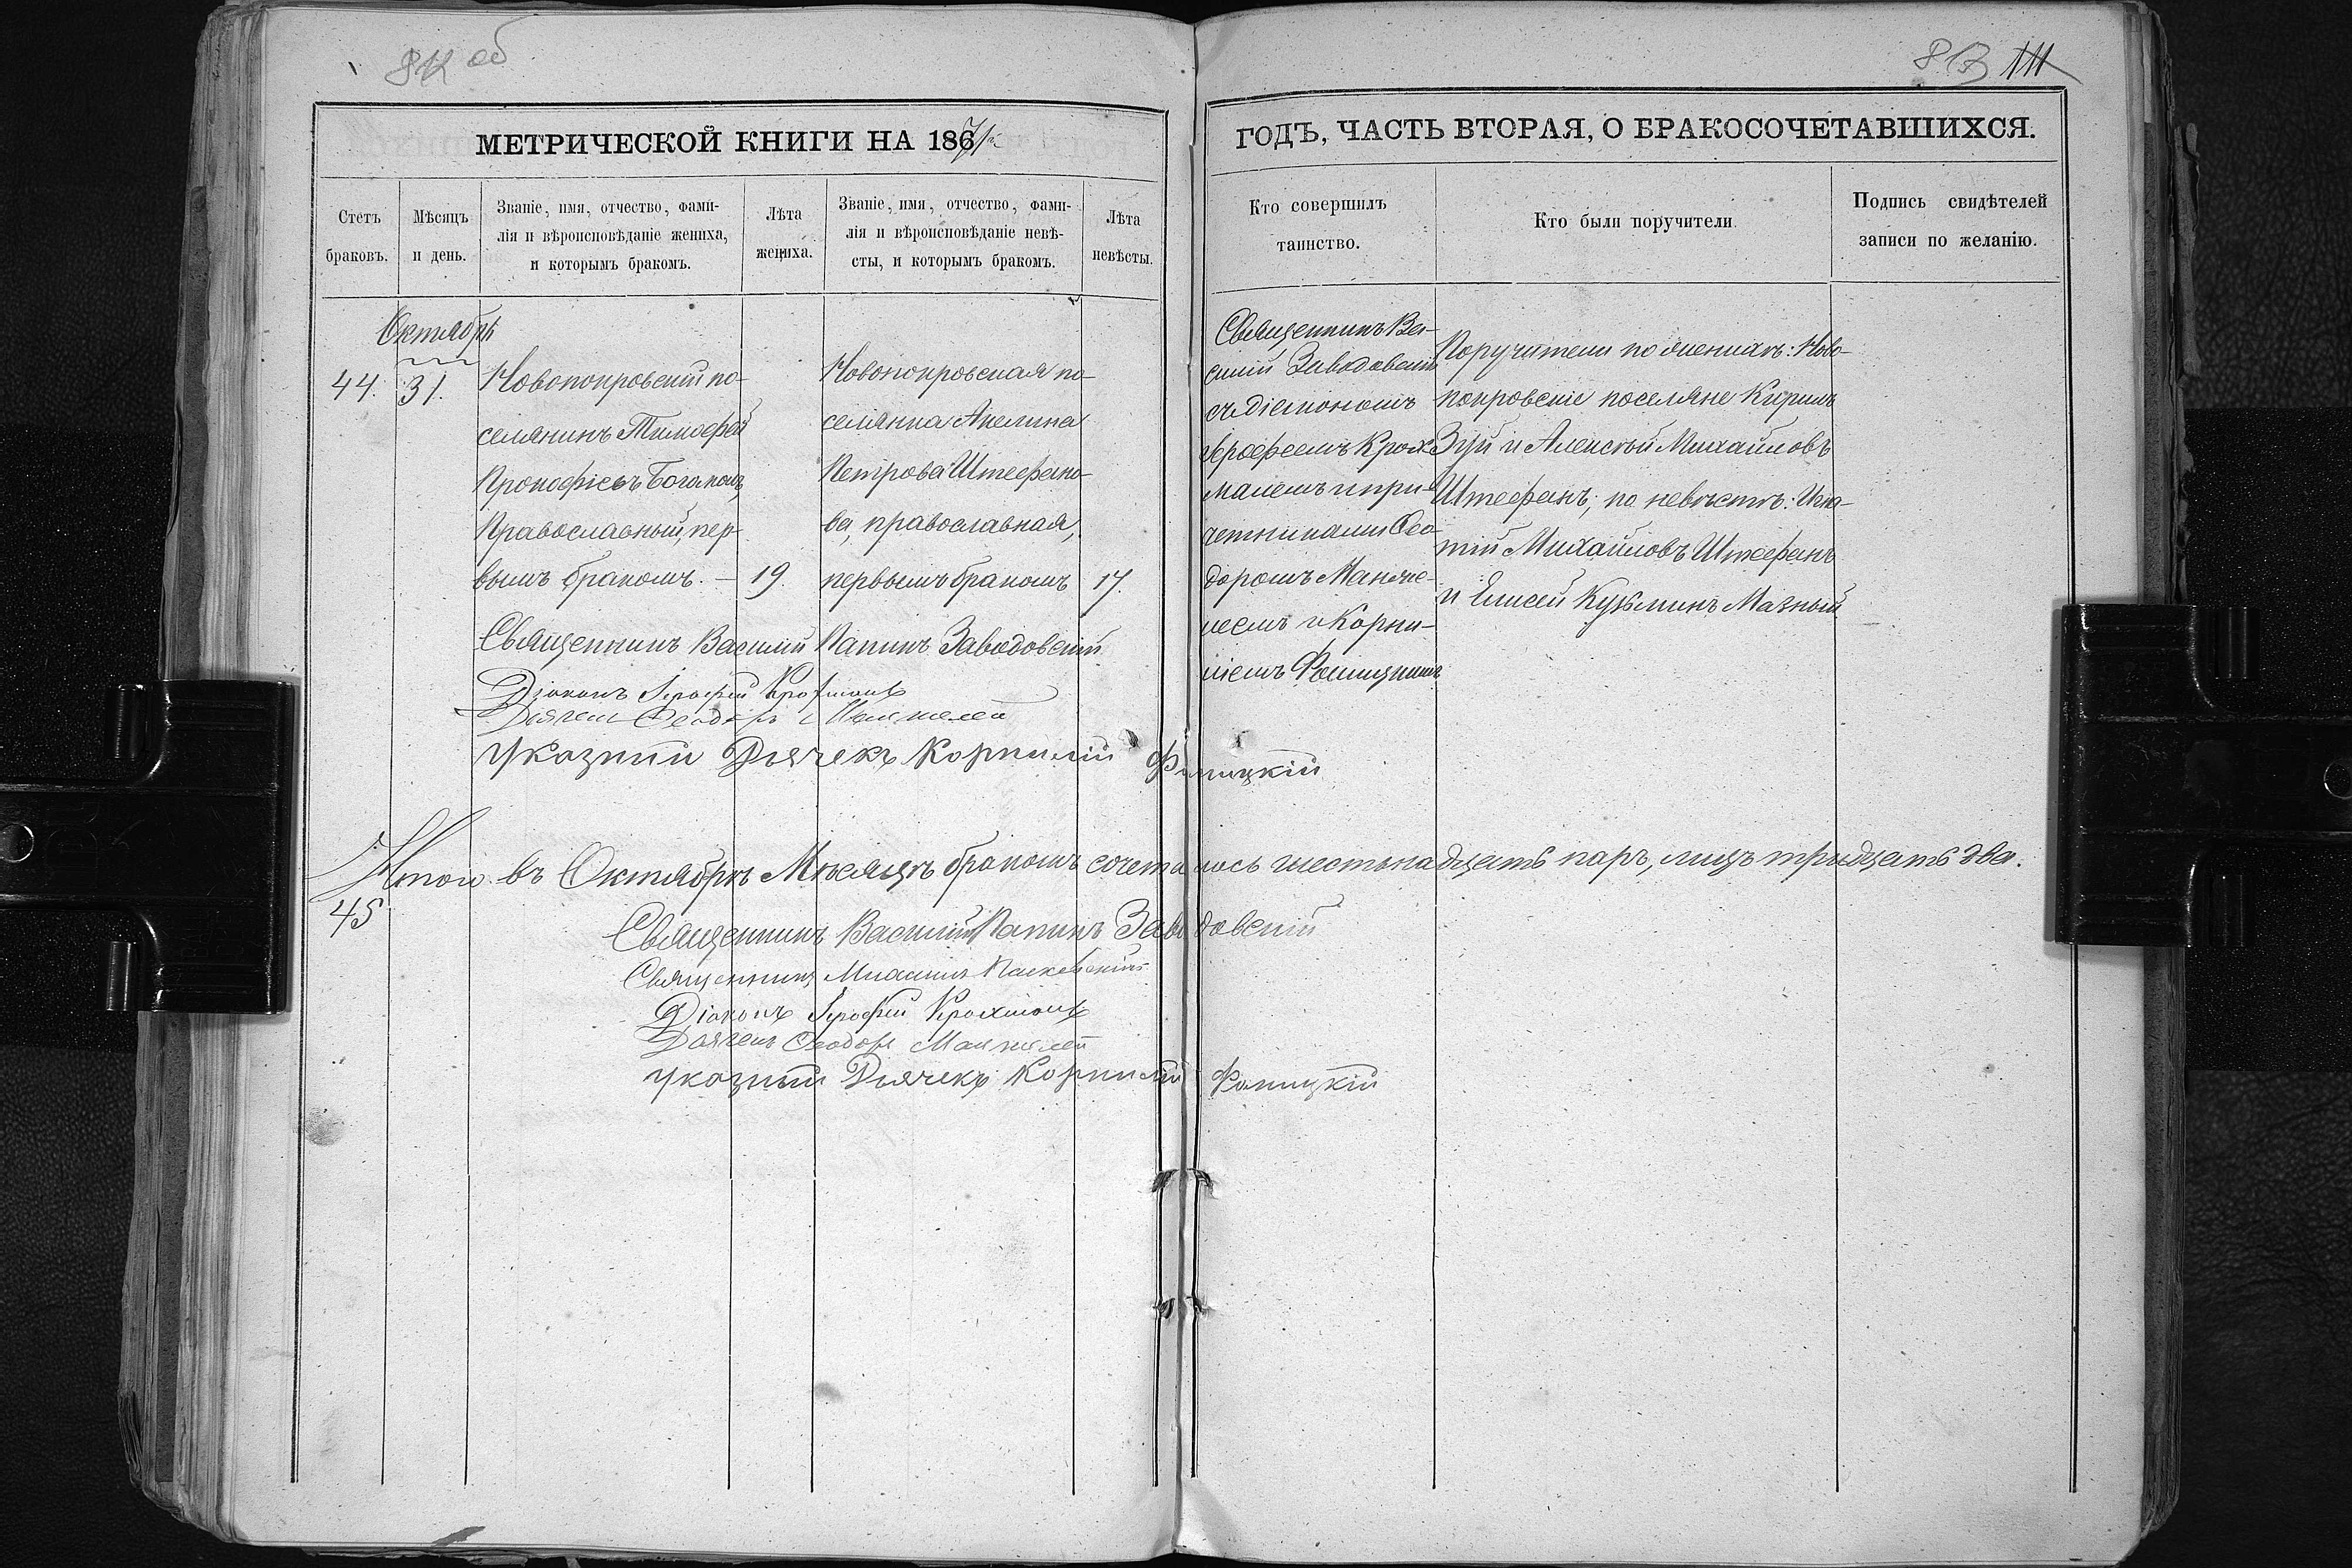 812 об
813 111
МЕТРИЧЕСКОЙ КНИГИ НА 1867/
ГОДЪ, ЧАСТЬ ВТОРАЯ, О БРАКОСОЧЕТАВШИХСЯ.
Счетъ
браковъ.
Мѣсяцъ
и день.
Званіе, имя, отчество, фами-
лія и вѣроисповѣданіе жениха,
и которымъ бракомъ.
Лѣта
жениха.
Званіе, имя, отчество, фами-
лія и вѣроисповѣданіе невѣ-
сты, и которымъ бракомъ.
Лѣта
невѣсты.
Кто совершилъ
таинство.
Кто были поручители
Подпись свидѣтелей
записи по желанію.
Октябрь
44.
31.
Новопокровскій по-
селянинъ Тимофей
Прокофіевъ
Православный, пер-
вымъ бракомъ. –
19.
Новопокровская по-
селянка Акелина
Петрова Штефано-
ва, православная,
первымъ бракомъ
17.
Священникъ Ва-
силій Заводовскій
съ Діакономъ
Іерофеемъ Крох-
малемъ и при-
четниками Ѳео-
доромъ Манже-
леемъ и Корни-
ліемъ Фомицкимъ
Поручители по женихѣ: Ново-
покровскіе поселяне Кирилъ
Зуй и Алексѣй Михайловъ
Штефанъ; по невѣстѣ: Игна-
тій Михайловъ Штефанъ
и Елисей Кузьминъ Мазный
Священникъ Василій Папинъ Заводовскій
Діаконъ Іерофей Крохмаль
Дьячекъ Ѳеодоръ Манжелей
Указный Дьячекъ Корнилій Фомицкій
Итого въ Октябрѣ Мѣсяцѣ бракомъ сочеталось шестьнадцать паръ, лицъ тридцать два.
45
Священникъ Василій Папинъ Заводовскій
Священникъ
Діаконъ Іерофей Крохмаль
Дьячекъ Ѳеодоръ Манжелей
Указный Дьячекъ Корнилій Фомицкій